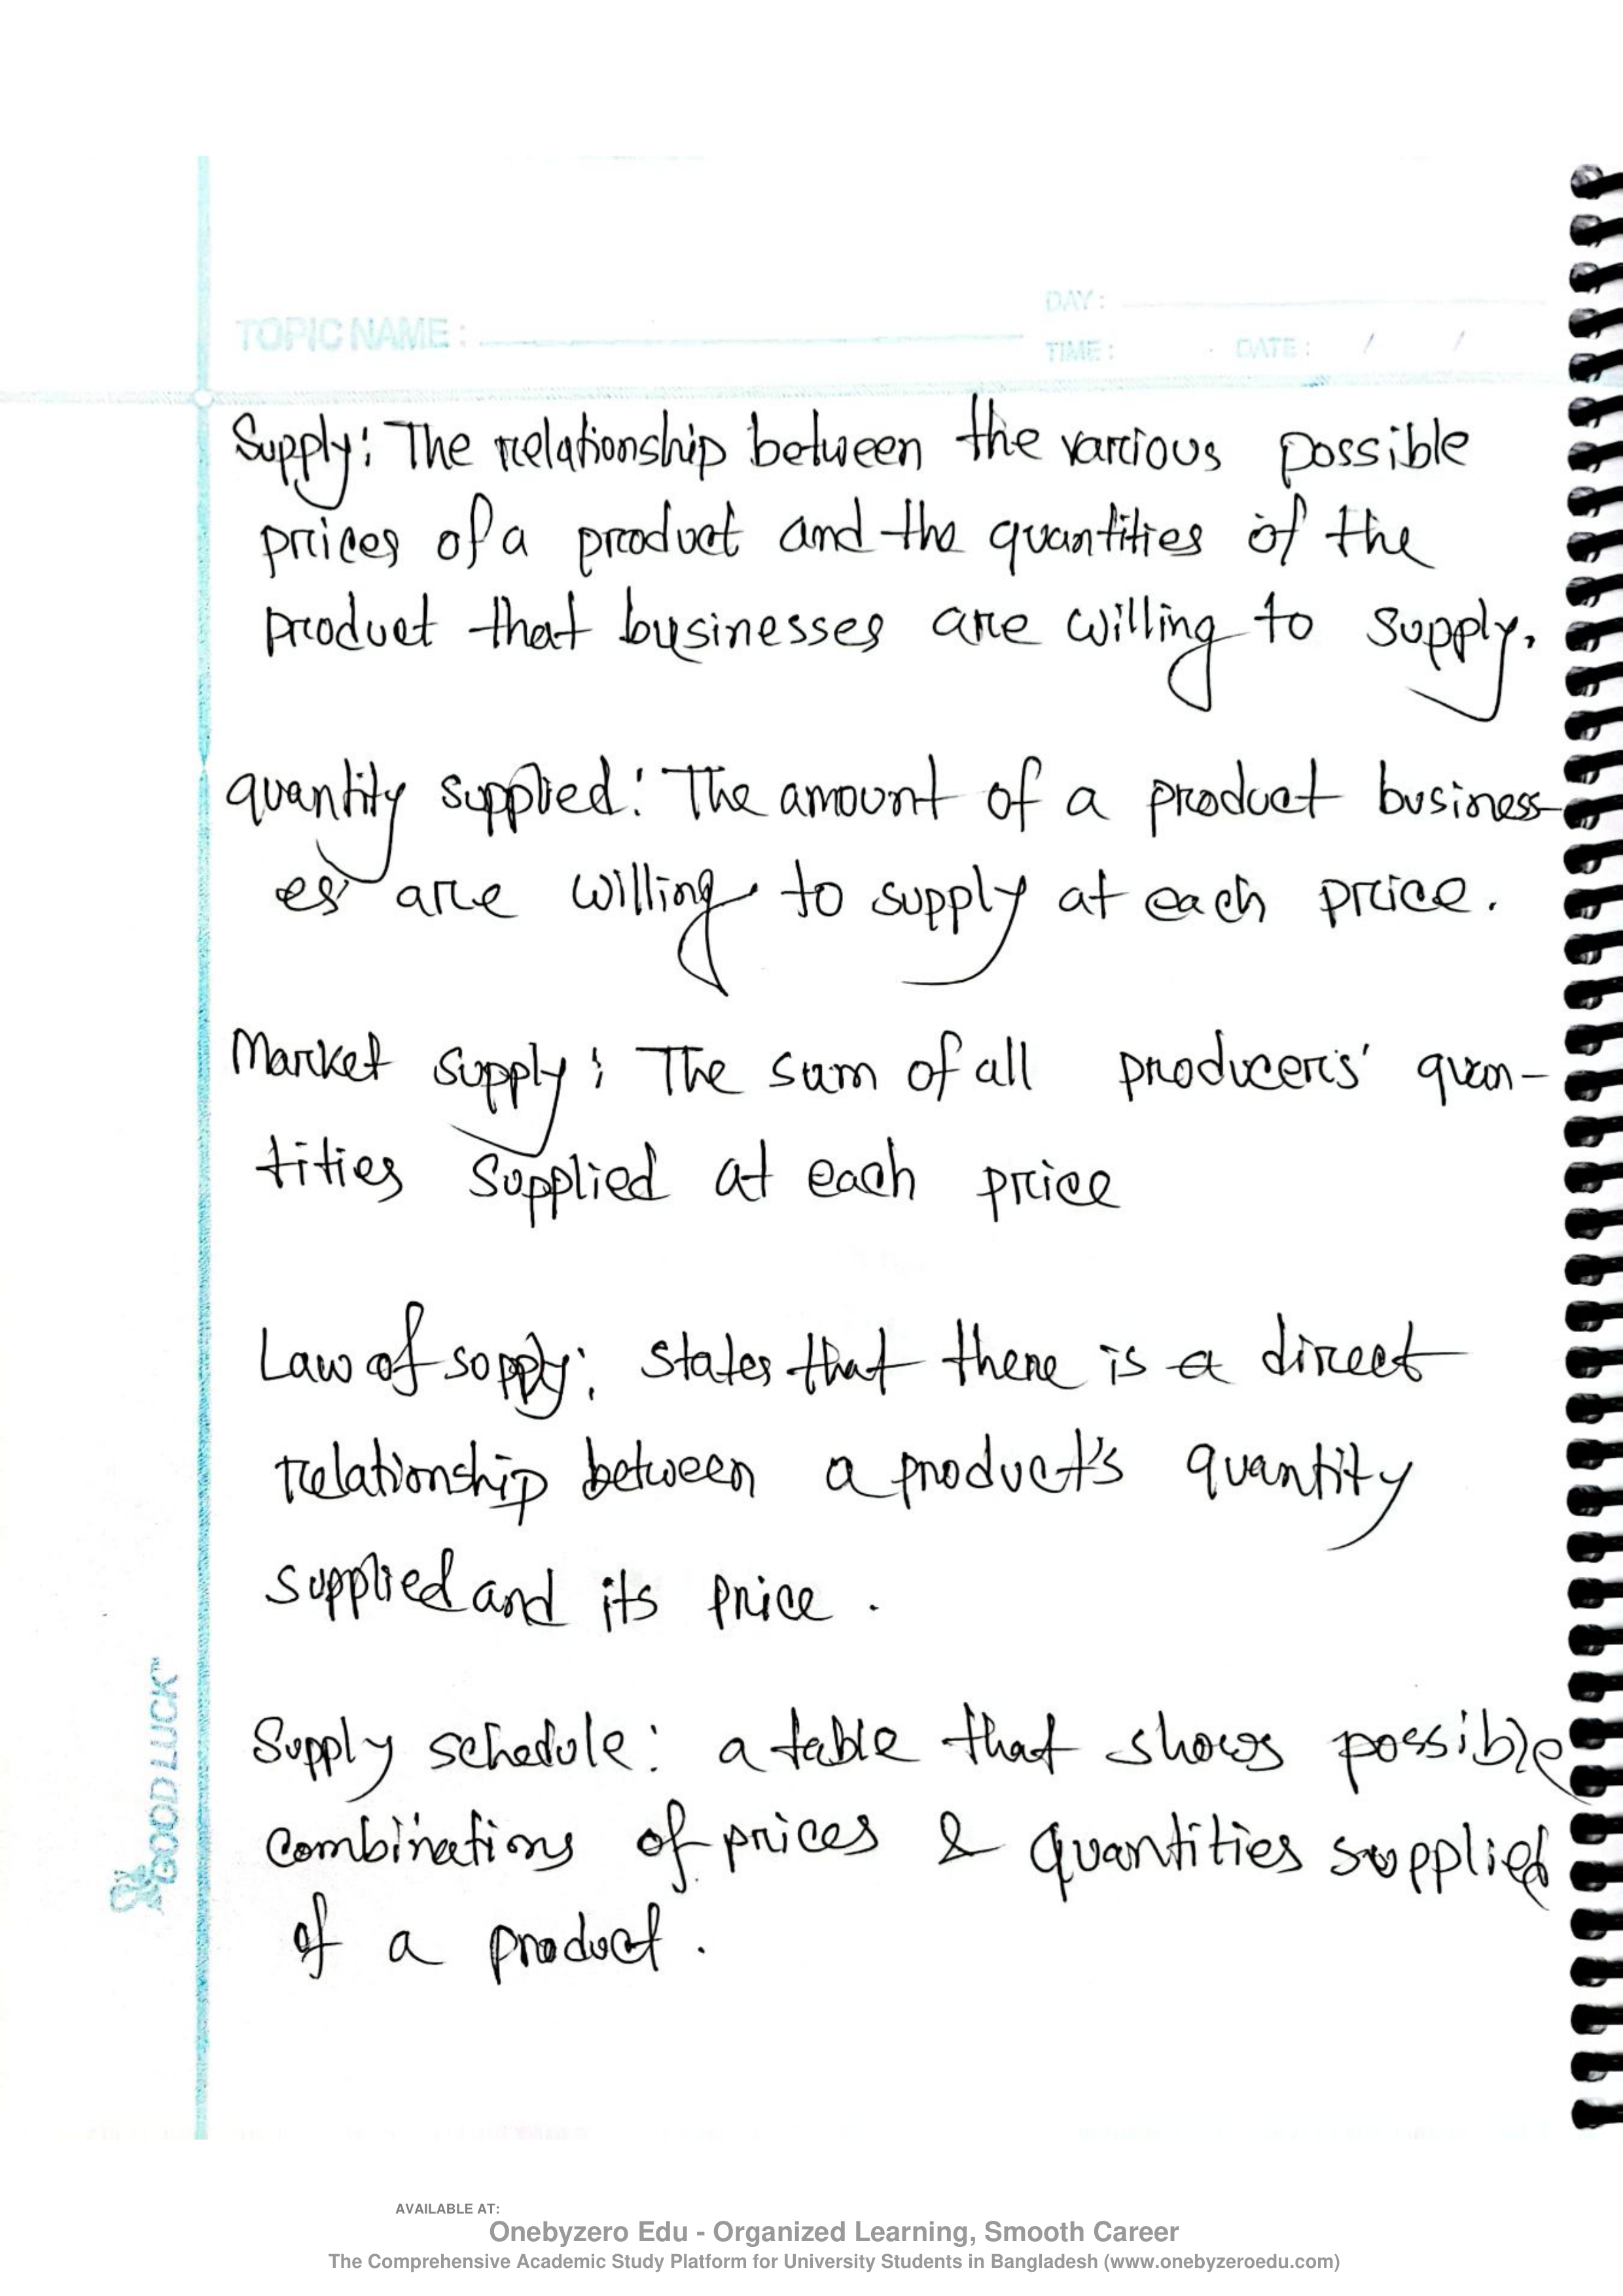 TOPIC NAME :
DAY :
TIME : DATE : / /
Supply: The relationship between the various possible
prices of a product and the quantities of the
product that businesses are willing to supply.
quantity supplied: The amount of a product business-
es are willing to supply at each price.
Market supply: The sum of all producers' quan-
tities supplied at each price
Law of supply: states that there is a direct
relationship between a product's quantity
supplied and its price.
Supply schedule: a table that shows possible
combinations of prices & quantities supplied
of a product.
GOOD LUCK™
AVAILABLE AT:
Onebyzero Edu - Organized Learning, Smooth Career
The Comprehensive Academic Study Platform for University Students in Bangladesh (www.onebyzeroedu.com)